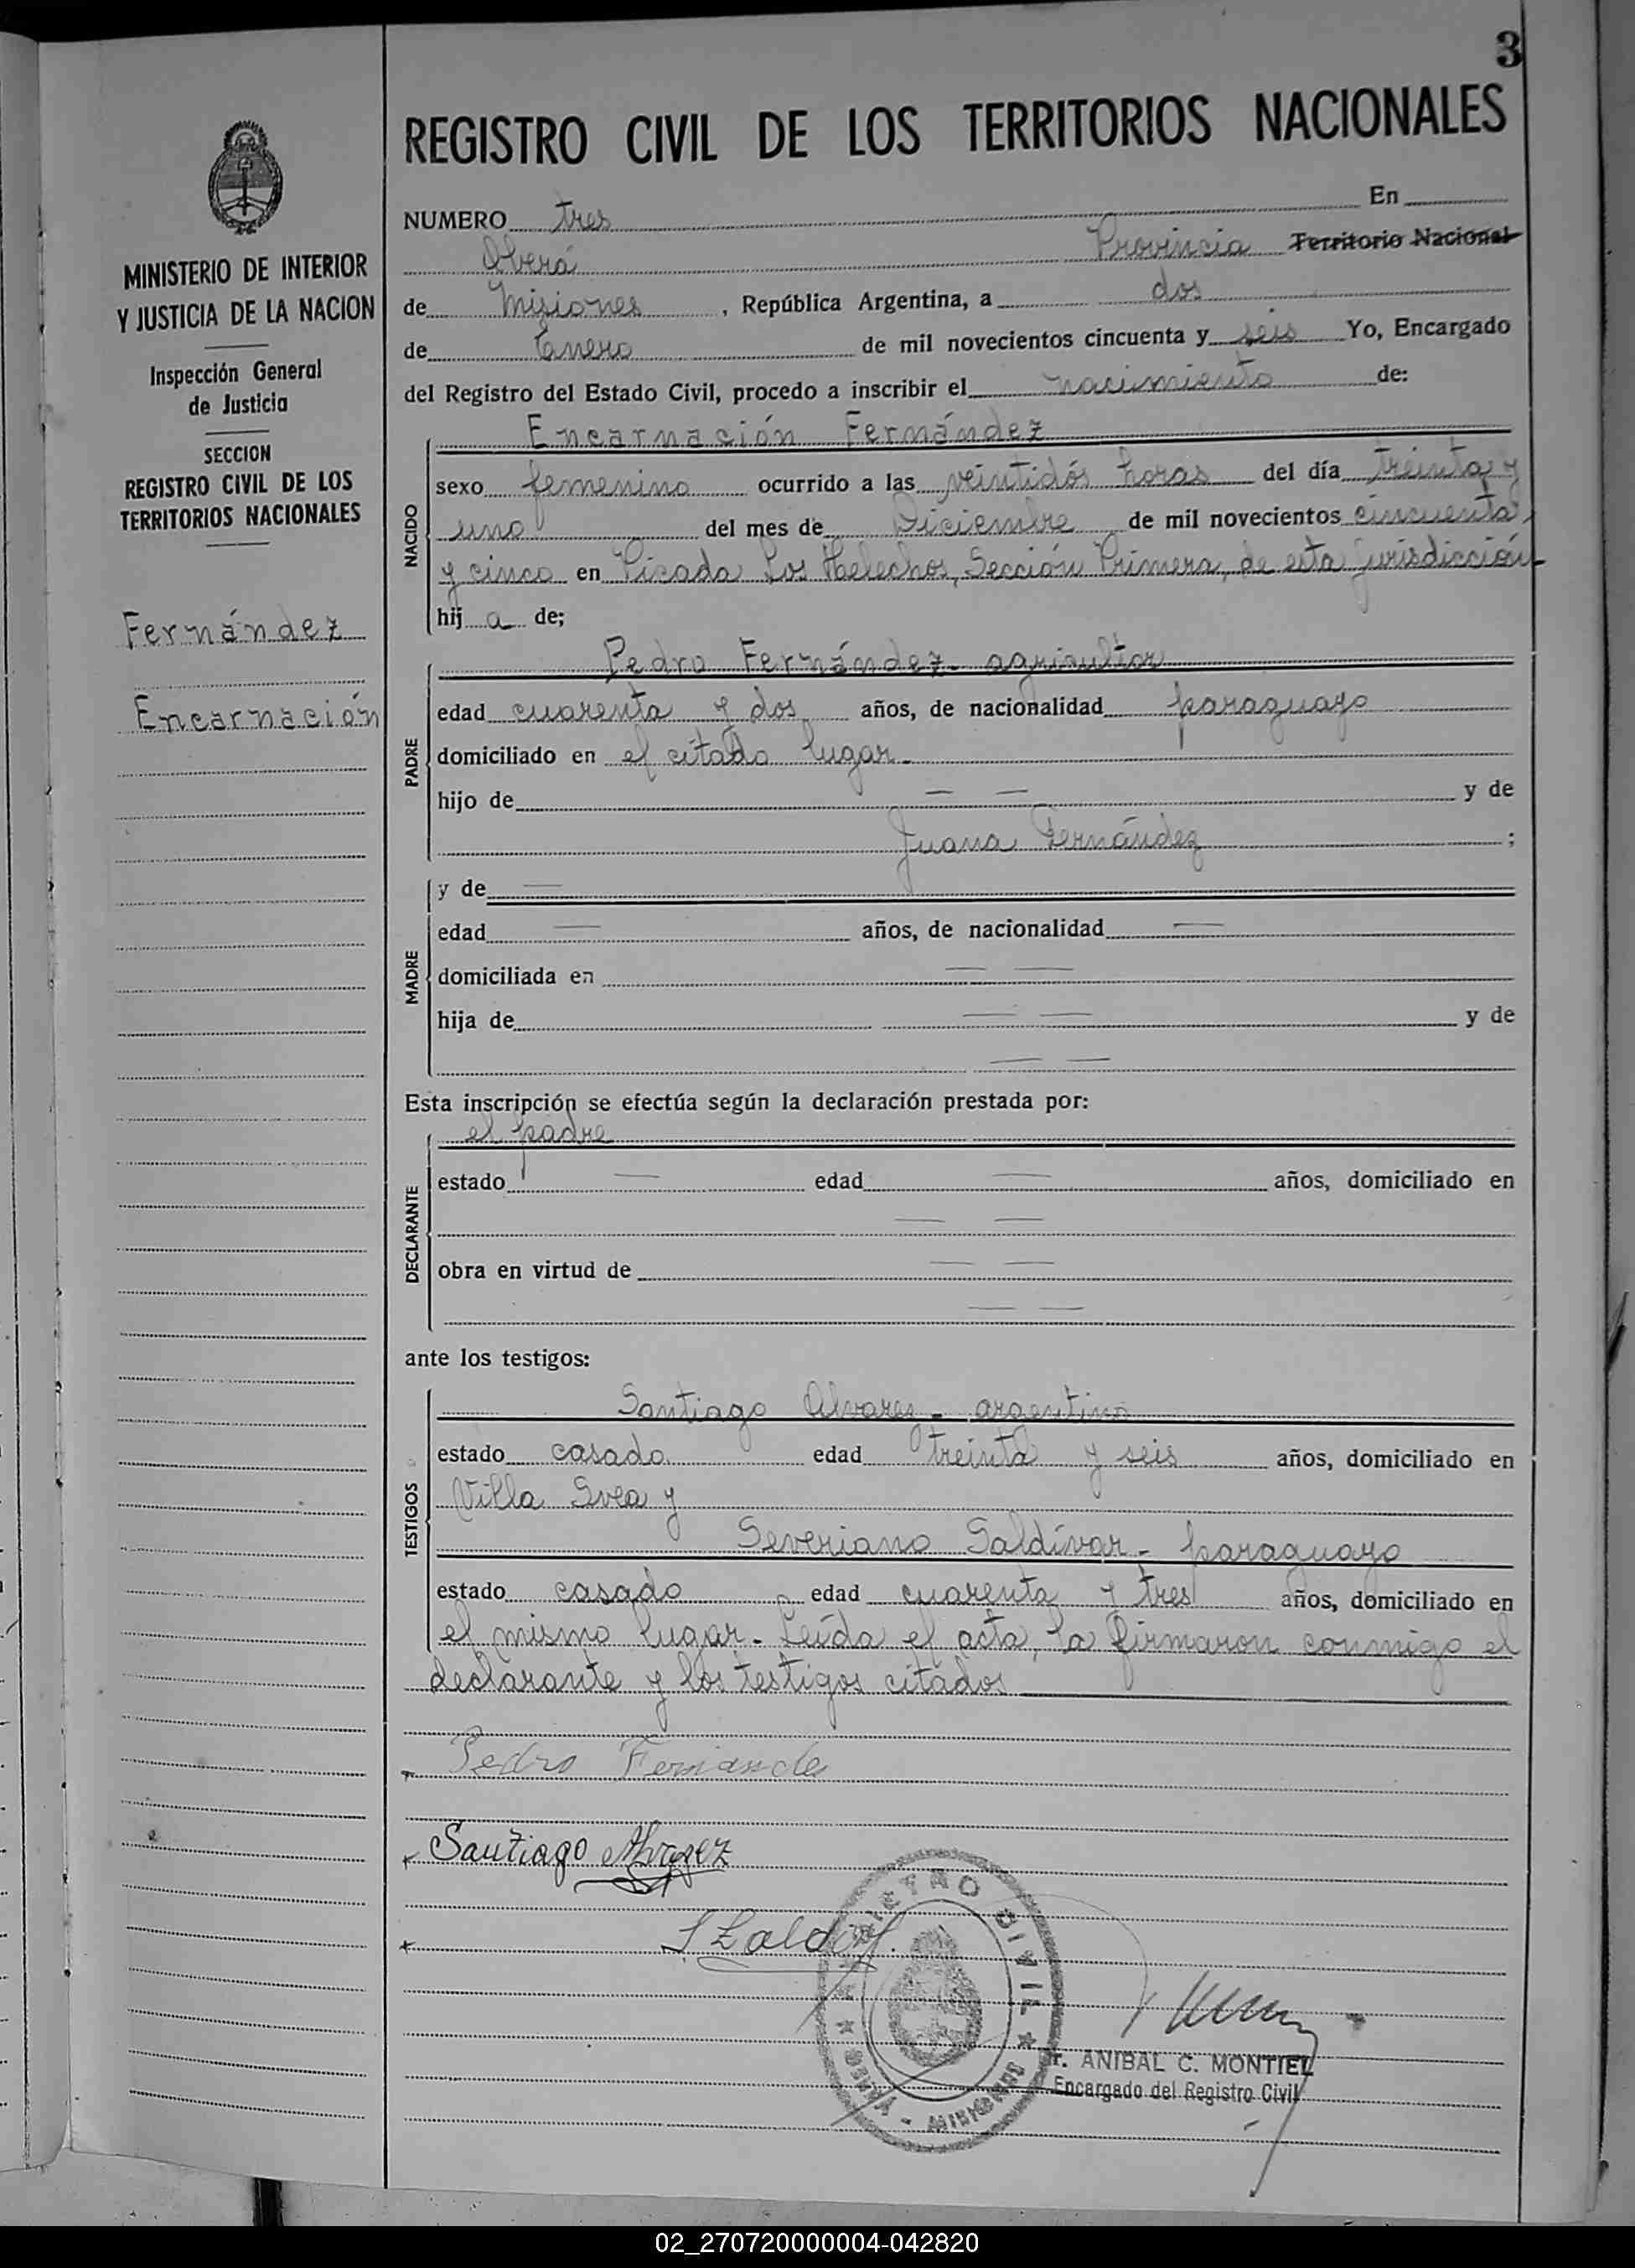 3
REGISTRO CIVIL DE LOS TERRITORIOS NACIONALES
MINISTERIO DE INTERIOR
Y JUSTICIA DE LA NACION
Inspección General
de Justicia
SECCION
REGISTRO CIVIL DE LOS
TERRITORIOS NACIONALES
Fernández
Encarnación
NUMERO tres En
Oberá Provincia Territorio Nacional
de Misiones, República Argentina, a dos
de Enero de mil novecientos cincuenta y seis Yo, Encargado
del Registro del Estado Civil, procedo a inscribir el nacimiento de:
NACIDO
Encarnación Fernández
sexo femenino ocurrido a las veintidós horas del día treinta y
uno del mes de Diciembre de mil novecientos cincuenta
y cinco en Picada Los Helechos, Sección Primera, de esta jurisdicción
hij a de;
PADRE
Pedro Fernández - agricultor
edad cuarenta y dos años, de nacionalidad paraguayo
domiciliado en el citado lugar.-
hijo de — — y de
Juana Fernández ;
MADRE
y de —
edad — años, de nacionalidad —
domiciliada en — —
hija de — — y de
— —
Esta inscripción se efectúa según la declaración prestada por:
DECLARANTE
el padre
estado — edad — años, domiciliado en
— —
obra en virtud de — —
— —
ante los testigos:
TESTIGOS
Santiago Alvarez - argentino
estado casado edad treinta y seis años, domiciliado en
Villa Svea y
Severiano Saldívar - paraguayo
estado casado edad cuarenta y tres años, domiciliado en
el mismo lugar.- Leída el acta, la firmaron conmigo el
declarante y los testigos citados
Pedro Fernandes
Santiago Alvarez
S Zaldiv.
REGISTRO CIVIL
OBERA - MISIONES
r. ANIBAL C. MONTIEL
Encargado del Registro Civil
02_270720000004-042820